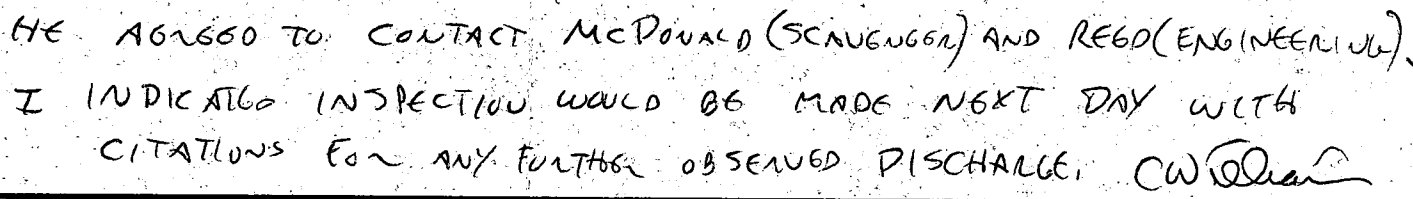 HE AGREED TO CONTACT McDONALD (SCAVENGER) AND REED (ENGINEERING).
I INDICATED INSPECTION WOULD BE MADE NEXT DAY WITH
CITATIONS FOR ANY FURTHER OBSERVED DISCHARGE.